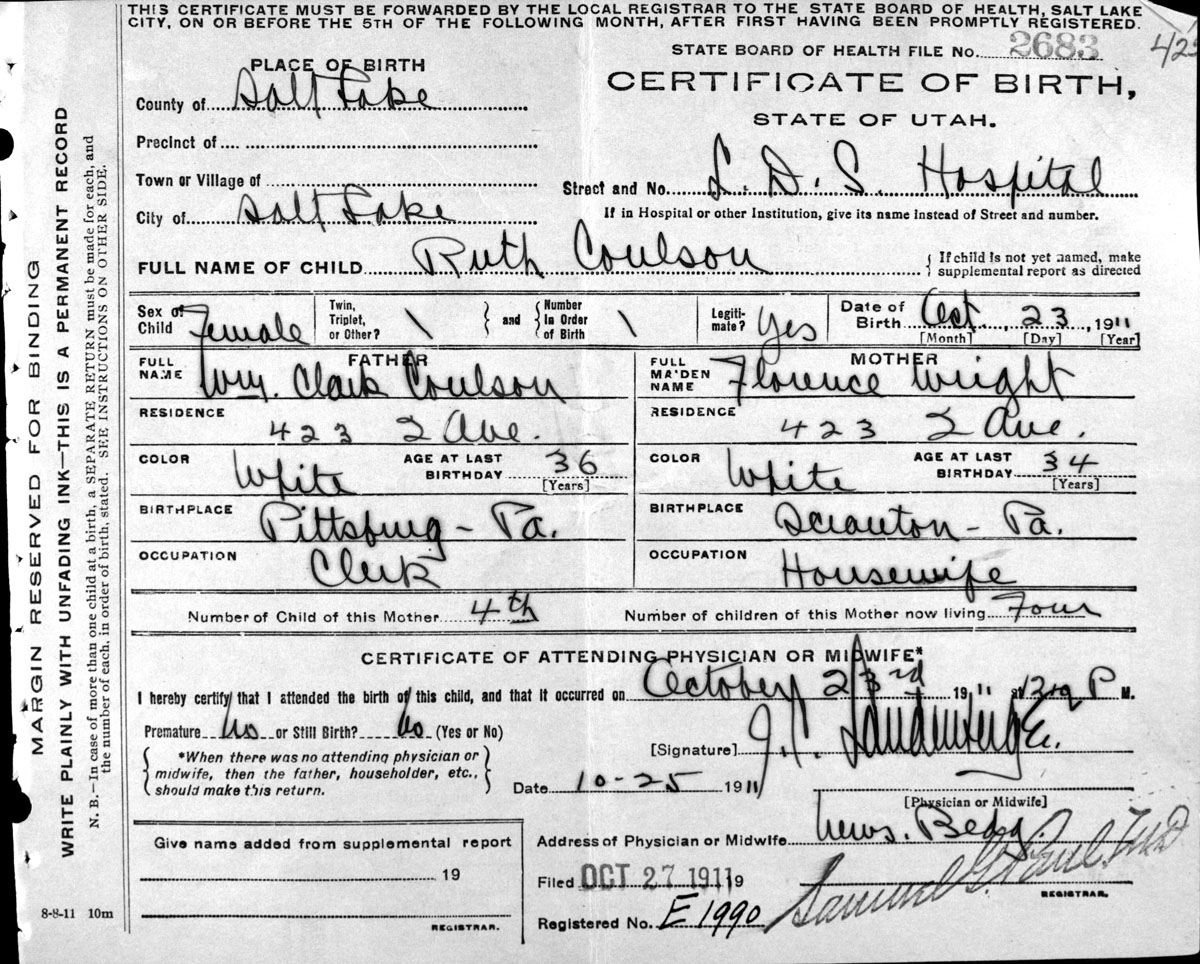 THIS CERTIFICATE MUST BE FORWARDED BY THE LOCAL REGISTRAR TO THE STATE BOARD OF HEALTH, SALT LAKE
CITY, ON OR BEFORE THE 5TH OF THE FOLLOWING MONTH, AFTER FIRST HAVING BEEN PROMPTLY REGISTERED.
STATE BOARD OF HEALTH FILE No. 2683
PLACE OF BIRTH
CERTIFICATE OF BIRTH,
STATE OF UTAH.
County of Salt Lake
Precinct of
Town or Village of
Street and No. L. D. S. Hospital
City of Salt Lake
If in Hospital or other Institution, give its name instead of Street and number.
FULL NAME OF CHILD Ruth Coulson
{ If child is not yet named, make
supplemental report as directed
Sex of Child Female
Twin, Triplet, or Other? \
} and { Number in Order of Birth \
Legiti-mate? Yes
Date of Birth Oct. 23, 1911
[Month] [Day] [Year]
FATHER
FULL NAME Wm. Clark Coulson
MOTHER
FULL MAIDEN NAME Florence Wright
RESIDENCE 423 2 Ave.
RESIDENCE 423 2 Ave.
COLOR White AGE AT LAST BIRTHDAY 36 [Years]
COLOR White AGE AT LAST BIRTHDAY 34 [Years]
BIRTHPLACE Pittsburg - Pa.
BIRTHPLACE Scranton - Pa.
OCCUPATION Clerk
OCCUPATION Housewife
Number of Child of this Mother 4th Number of children of this Mother now living Four
CERTIFICATE OF ATTENDING PHYSICIAN OR MIDWIFE*
I hereby certify that I attended the birth of this child, and that it occurred on October 23rd 1911 at P M.
Premature No or Still Birth? No (Yes or No)
*When there was no attending physician or
midwife, then the father, householder, etc.,
should make this return.
[Signature]
Date 10-25 1911
[Physician or Midwife]
Address of Physician or Midwife News. Bldg.
Give name added from supplemental report
19
REGISTRAR.
Filed OCT 27 1911 19
Samuel G. Paul
REGISTRAR.
Registered No. E 1990
8-8-11 10m
MARGIN RESERVED FOR BINDING
WRITE PLAINLY WITH UNFADING INK—THIS IS A PERMANENT RECORD
N. B.—In case of more than one child at a birth, a SEPARATE RETURN must be made for each, and
the number of each, in order of birth, stated. SEE INSTRUCTIONS ON OTHER SIDE.